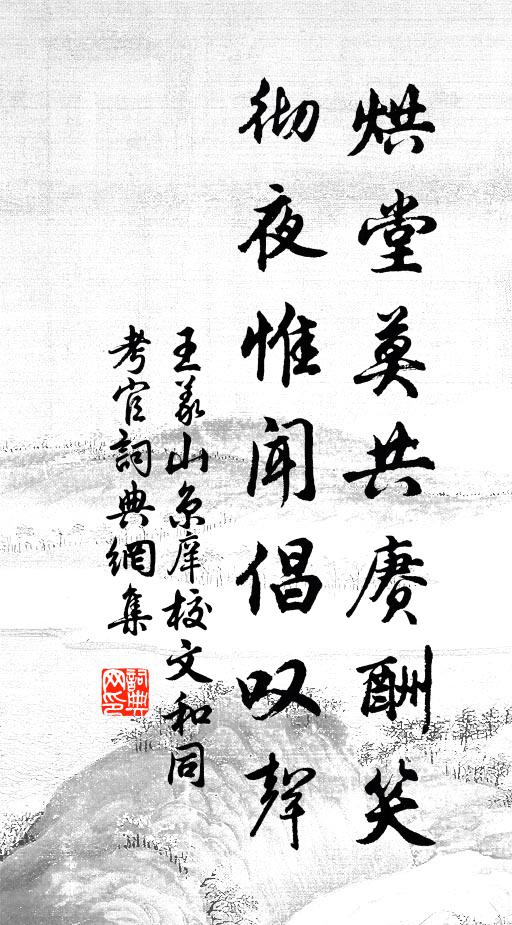 烘堂莫共賡酬笑
彻夜惟聞倡叹聲
王义山京庠校文和同
考官詞典網集
詞典网印